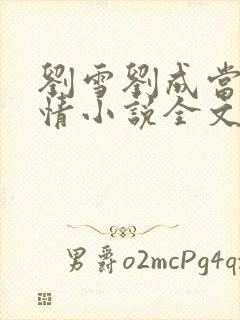 劉雪劉成當
情小說全文
男爵o2mcPg4q